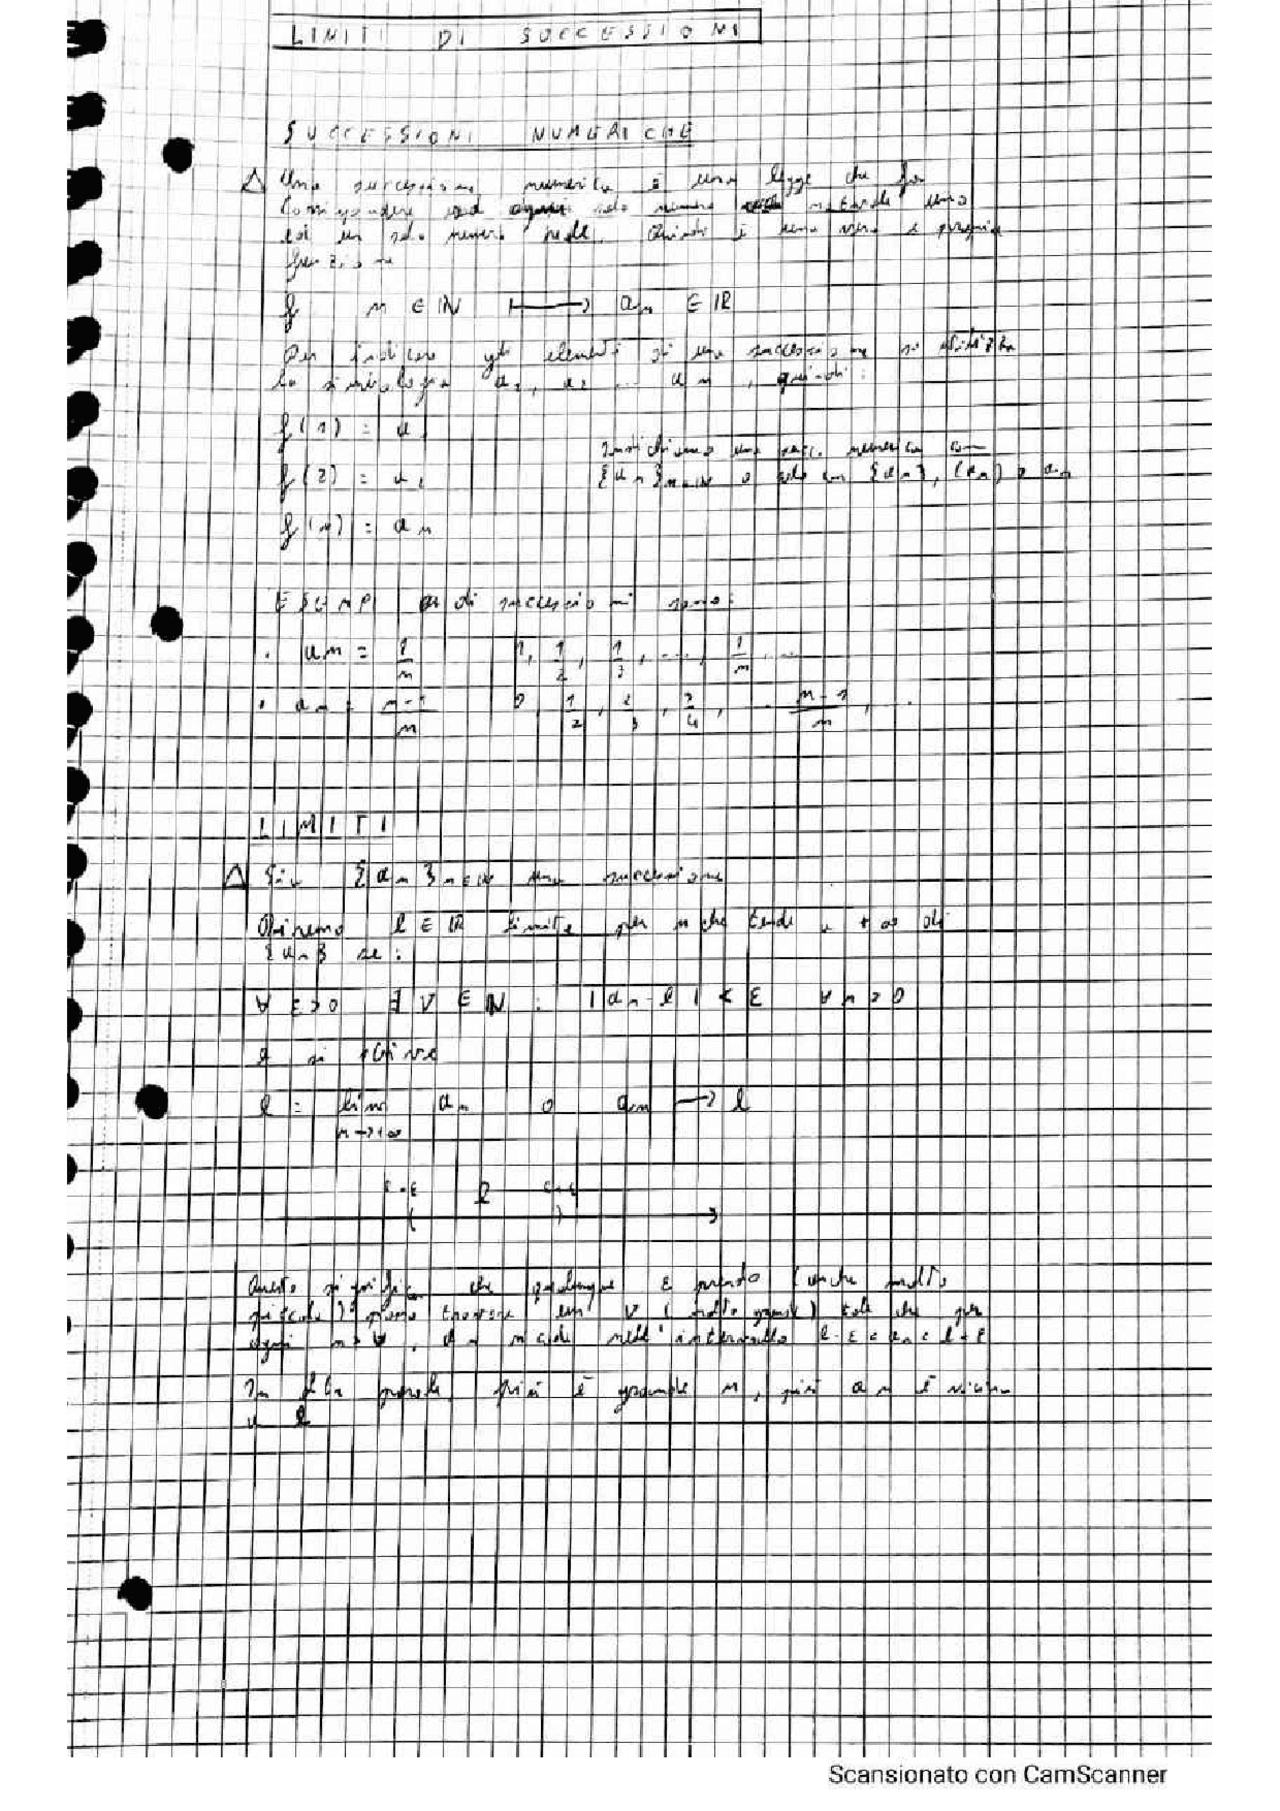 LIMITI DI SUCCESSIONI
SUCCESSIONI NUMERICHE
Una successione numerica è una legge che fa
corrispondere ad ogni numero naturale uno
ed un solo numero reale. Quindi è una vera e propria
funzione
f n ∈ ℕ ⟼ an ∈ ℝ
Per indicare gli elementi di una successione si utilizza
la simbologia a1, a2 ... an, quindi:
f(1) = a1
Indichiamo una succ. numerica con
f(2) = a2
{an}n∈ℕ o solo con {an}, (an) o an
f(n) = an
ESEMPI di successioni sono:
· an = 1/n 1, 1/2, 1/3, ..., 1/n ...
· an = n-1/n 0 1/2, 2/3, 3/4, ... n-1/n, ...
LIMITI
Sia {an}n∈ℕ una successione
Diremo l ∈ ℝ limite per n che tende a +∞ di
{an} se:
∀ ε>0 ∃ ν ∈ ℕ : |an-l| < ε ∀ n>ν
e si scrive
l = lim an o an → l
n→+∞
l-ε l l+ε
Questo significa che qualunque ε prendo (anche molto
piccolo) posso trovare un ν (molto grande) tale che per
ogni n>ν, an cade nell'intervallo l-ε<an<l+ε
In altre parole, più è grande n, più an è vicino
a l
Scansionato con CamScanner